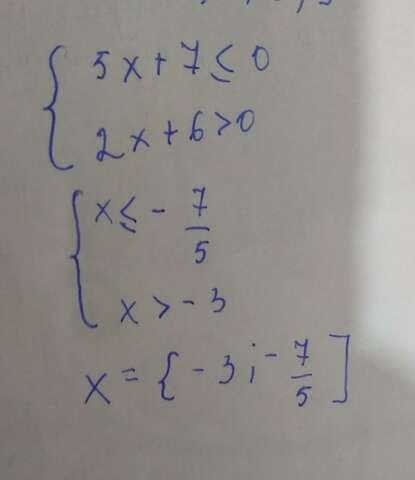 5x+7≤0
2x+6>0
x≤-7/5
x>-3
x={-3;-7/5]